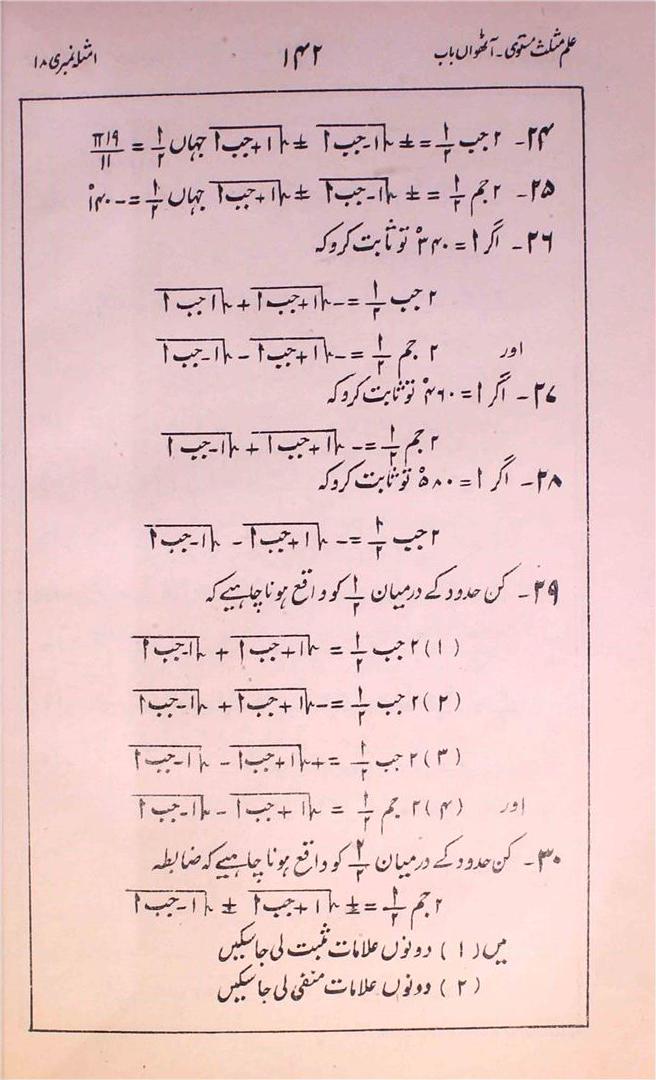 علم مثلث مستوی۔ آٹھواں باب ۱۴۲ امثلہ نمبری ۱۸
۲۴۔ ۲ جب ا/۲ = ± √(۱-جب ا) ± √(۱+جب ا) جہاں ا/۲ = ۱۹π/۱۱
۲۵۔ ۲ جم ا/۲ = ± √(۱-جب ا) ± √(۱+جب ا) جہاں ا/۲ = -۱۴۰°
۲۶۔ اگر ا = ۳۴۰° تو ثابت کرو کہ
۲ جب ا/۲ = -√(۱+جب ا) + √(۱ جب ا)
اور ۲ جم ا/۲ = -√(۱+جب ا) - √(۱-جب ا)
۲۷۔ اگر ا = ۴۶۰° تو ثابت کرو کہ
۲ جم ا/۲ = -√(۱+جب ا) + √(۱-جب ا)
۲۸۔ اگر ا = ۵۸۰° تو ثابت کرو کہ
۲ جب ا/۲ = -√(۱+جب ا) - √(۱-جب ا)
۲۹۔ کن حدود کے درمیان ا/۲ کو واقع ہونا چاہیے کہ
(۱) ۲ جب ا/۲ = √(۱+جب ا) + √(۱-جب ا)
(۲) ۲ جب ا/۲ = -√(۱+جب ا) + √(۱-جب ا)
(۳) ۲ جب ا/۲ = +√(۱+جب ا) - √(۱-جب ا)
اور (۴) ۲ جم ا/۲ = √(۱+جب ا) - √(۱-جب ا)
۳۰۔ کن حدود کے درمیان ۲/۲ کو واقع ہونا چاہیے کہ ضابطہ
۲ جم ا/۲ = ± √(۱+جب ا) ± √(۱-جب ا)
میں (۱) دونوں علامات مثبت لی جا سکیں
(۲) دونوں علامات منفی لی جا سکیں